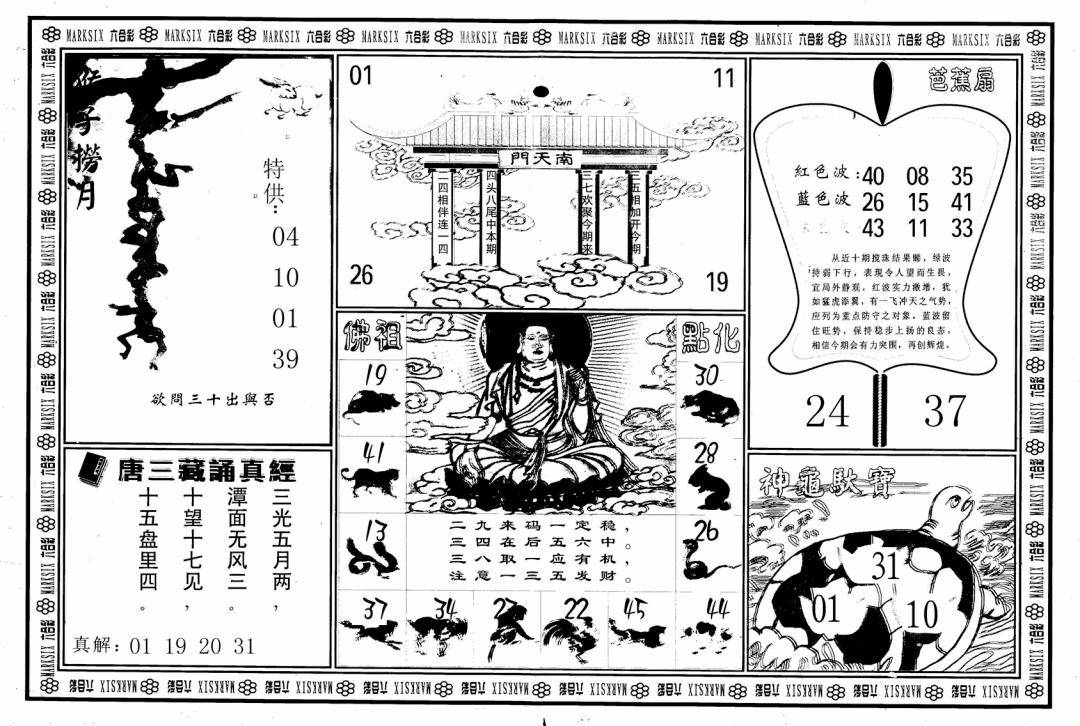 MARKSIX 六合彩 MARKSIX 六合彩 MARKSIX 六合彩 MARKSIX 六合彩 MARKSIX 六合彩 MARKSIX 六合彩 MARKSIX 六合彩 MARKSIX 六合彩 MARKSIX 六合彩 MARKSIX 六合彩
猴子撈月
特供：
04
10
01
39
欲問三十出與否
唐三藏誦真經
三光五月两，
潭面无风三。
十望十七见，
十五盘里四。
真解：01 19 20 31
01
11
南天門
二四相伴连一四
四头八尾中本期
三七欢聚今期来
三五相加开今期
26
19
佛祖
點化
19
30
41
28
13
26
二九来码一定稳，
三四在后五六中。
三八取一应有机，
注意一三五发财。
37 34 23 22 45 44
芭蕉扇
紅色波：40 08 35
藍色波 26 15 41
43 11 33
从近十期搅珠结果睇，绿波
持弱下行，表现令人望而生畏，
宜局外静观。红波实力激增，犹
如猛虎添翼，有一飞冲天之气势，
应列为重点防守之对象。蓝波留
住旺势，保持稳步上扬的良态，
相信今期会有力突围，再创辉煌。
24
37
神龜馱寶
31
01
10